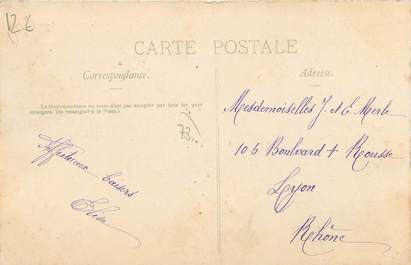 12 €
CARTE POSTALE
Correspondance.
Adresse.
La Correspondance au verso n'est pas acceptée par tous les pays
étrangers. (Se renseigner à la Poste.)
73.
Affectueux baisers
Mesdemoiselles J. et E. Merle
105 Boulvard + Rousse
Lyon
Rhône